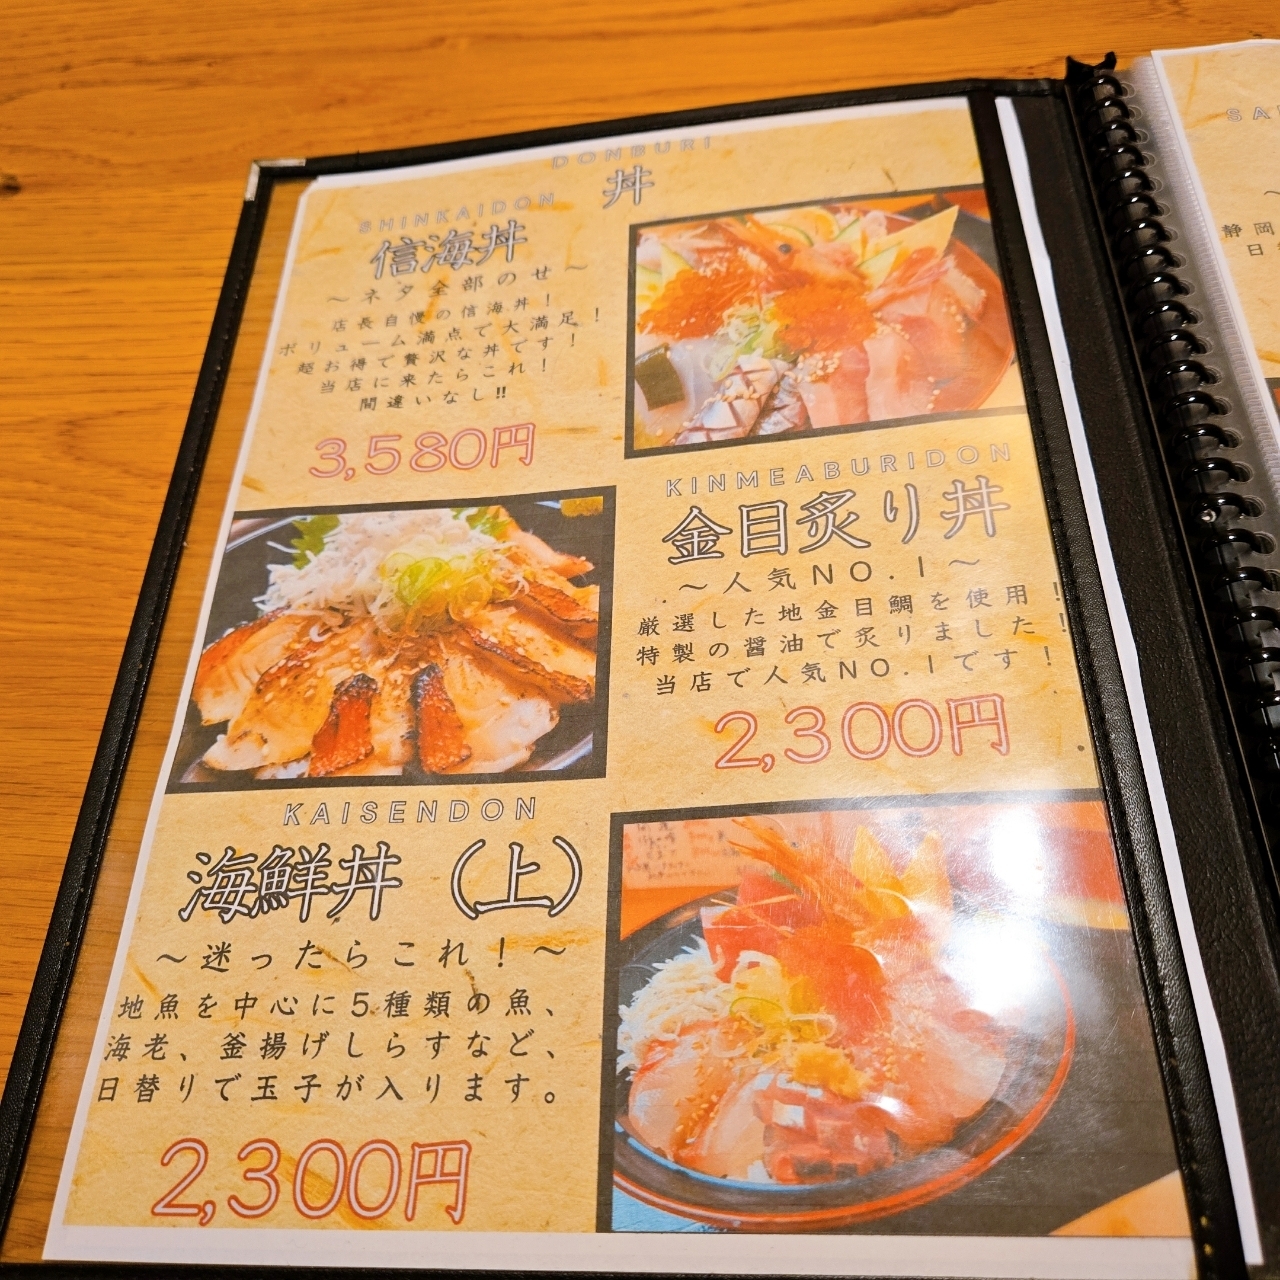 DONBURI
丼
SHINKAIDON
信海丼
～ネタ全部のせ～
店長自慢の信海丼！
ボリューム満点で大満足！
超お得で贅沢な丼です！
当店に来たらこれ！
間違いなし!!
3,580円
KINMEABURIDON
金目炙り丼
～人気NO.1～
厳選した地金目鯛を使用！
特製の醤油で炙りました！
当店で人気NO.1です！
2,300円
KAISENDON
海鮮丼（上）
～迷ったらこれ！～
地魚を中心に5種類の魚、
海老、釜揚げしらすなど、
日替りで玉子が入ります。
2,300円
SA
～
静岡
日